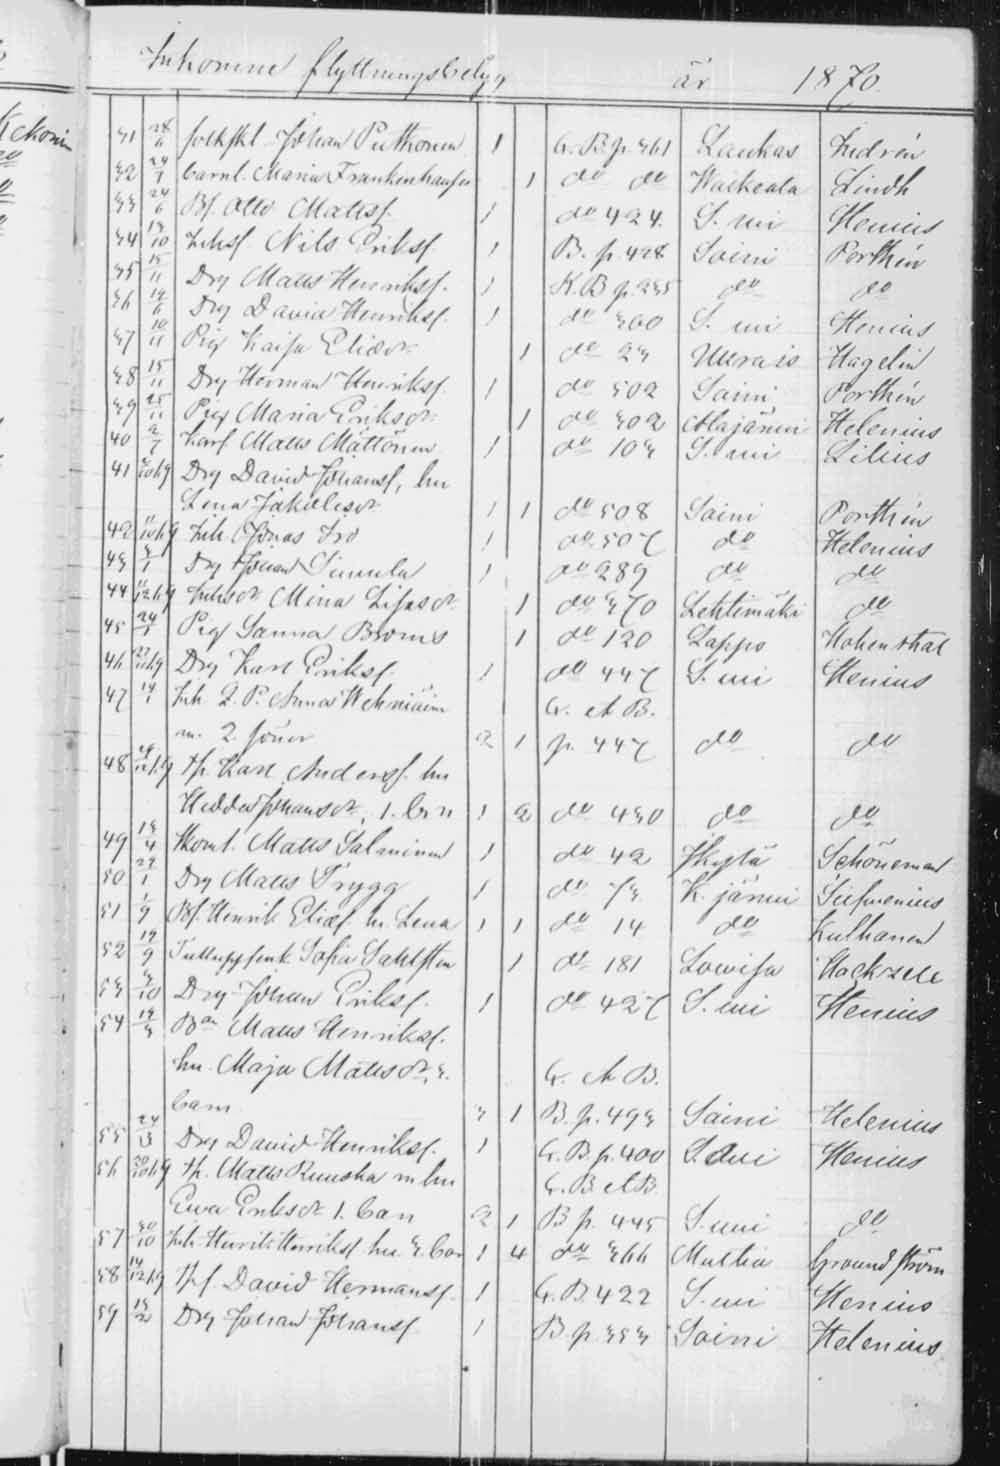 Inkomne flyttningsbetyg år 1870.
31 28/6 Johan Putkonen 1 G.B.p. 361 Laukas Zidrén
32 24/1 Barnl. Maria Frankenhauser 1 do do Walkeala Lindh
33 24/6 Bs. Otto Mattsf. 1 do 424. S. mi Henius
34 13/10 Inhsf. Nils Eriksf. 1 B. p. 428 Soini Porthén
35 15/11 Drg Matts Henriksf. 1 K.B p. 235 do do
36 19/6 Drg David Henriksf. 1 do 360 S. mi Henius
37 10/11 Pig Kaisa Eliædr. 1 do 23 Uurais Hagelin
38 15/11 Drg Herman Henriksf. 1 do 502 Soini Porthén
39 25/11 Pig Maria Eriksdr. 1 do 302 Alajärwi Helenius
40 2/7 Karl Matts Mattonen 1 do 103 S. mi Lilius
41 Drg David Johansf, hu
Lena Jakobsdr 1 1 do 508 Soini Porthén
42 Inh. Jonas Iso 1 do 507 do Helenius
43 Drg Johan Simula 1 do 289 do do
44 Inhsdr Mina Lisasdr 1 do 370 Lehtimäki do
45 24/1 Pig Sanna Broms 1 do 120 Lappo Hohenthal
46 Drg Karl Eriksf. 1 do 447 S. mi Henius
47 Inh. Q. P. Anna Wehniäin G. A B.
m. 2 söner 2 1 p. 447 do do
48 Tp. Karl Andersf. hu
Hedda Johansdr, 1. brn 1 2 do 430 do do
49 13/4 Skoml. Matts Salminen 1 do 42 Jkylä Schöneman
50 22/1 Drg Matts Trygg 1 do 73 K. järwi
51 Bs. Henrik Eliæf h. Lena 1 1 do 14 do Kulhanen
52 19/9 Sofia Sahlsten 1 do 181 Lowisa Hackzell
53 3/10 Drg Johan Eriksf. 1 do 427 S. mi Henius
54 Bn Matts Henriksf.
hu. Maja Mattsdr, 3. G. A B.
barn 3 1 B. p. 493 Soini Helenius
55 Drg David Henriksf. 1 G. B. p. 400 S. mi Henius
56 Tp. Matts Ruuska m. hu G. B A B
Ewa Eriksdr 1. barn 2 1 B p. 445 S. mi do
57 30/10 Inh. Henrik Henriksf. hu 3. bar 1 4 do 366 Multia Groundström
58 Tpf. David Hermansf. 1 G. B 422 S. mi Henius
59 13/2 Drg Johan Johansf 1 B. p. 353 Soini Helenius